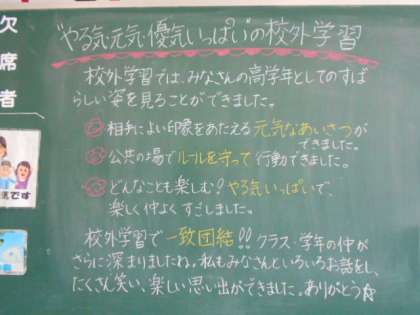 "やる気・元気・優気いっぱい"の校外学習
欠席者
校外学習では、みなさんの高学年としてのすば
らしい姿を見ることができました。
相手によい印象をあたえる元気なあいさつが
できました。
公共の場でルールを守って行動できました。
どんなことも楽しむ？やる気いっぱいで、
楽しく仲よくすごしました。
校外学習で一致団結!!クラス・学年の仲が
さらに深まりましたね。私もみなさんといろいろお話をし、
たくさん笑い、楽しい思い出ができました。ありがとう☆
です